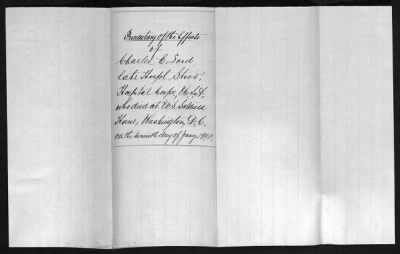 Inventory of the Effects
of
Charles E.
late Hospl. Stwd.,
Hospital Corps, U.S.A.
who died at U.S. Soldiers
Home, Washington, D.C.
on the day of Jany.